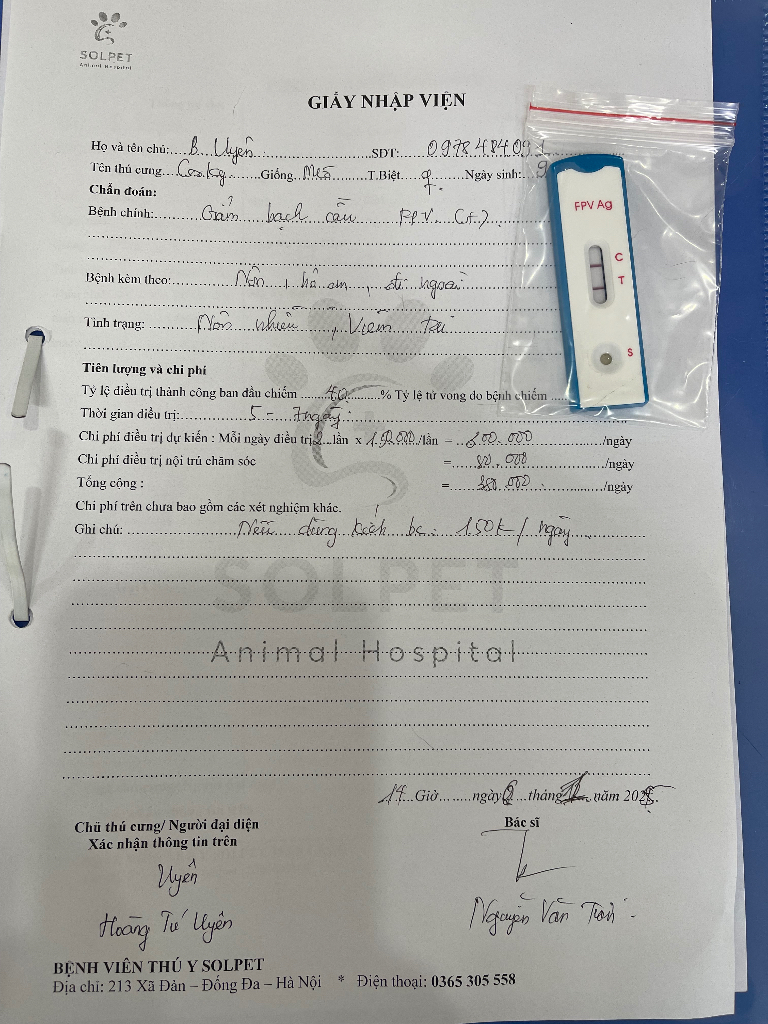 SOLPET
Animal Hospital
GIẤY NHẬP VIỆN
Họ và tên chủ:....B Uyên....SĐT:....0978484091
Tên thú cưng....Corky....Giống...Mèo....T.Biệt...♀....Ngày sinh:...9
Chẩn đoán:
Bệnh chính:....Giảm bạch cầu FPV (+)
Bệnh kèm theo:....Nôn, bỏ ăn, đi ngoài
Tình trạng:....Nôn nhiều, Viêm
Tiên lượng và chi phí
Tỷ lệ điều trị thành công ban đầu chiếm ....40....% Tỷ lệ tử vong do bệnh chiếm ....
Thời gian điều trị:....5 - 7 ngày
Chi phí điều trị dự kiến : Mỗi ngày điều trị 2 lần x /lần = 300.000 /ngày
Chi phí điều trị nội trú chăm sóc =....80.000..../ngày
Tổng cộng : =....380.000..../ngày
Chi phí trên chưa bao gồm các xét nghiệm khác.
Ghi chú:....Nếu dùng kích bc : 150k/ngày
SOLPET
Animal Hospital
14 Giờ ........ngày ....tháng ... năm 202
Chủ thú cưng/ Người đại diện
Xác nhận thông tin trên
Bác sĩ
Uyên
Hoàng Tú Uyên
Nguyễn Văn
BỆNH VIÊN THÚ Y SOLPET
Địa chỉ: 213 Xã Đàn – Đống Đa – Hà Nội * Điện thoại: 0365 305 558
FPV Ag
C
T
S